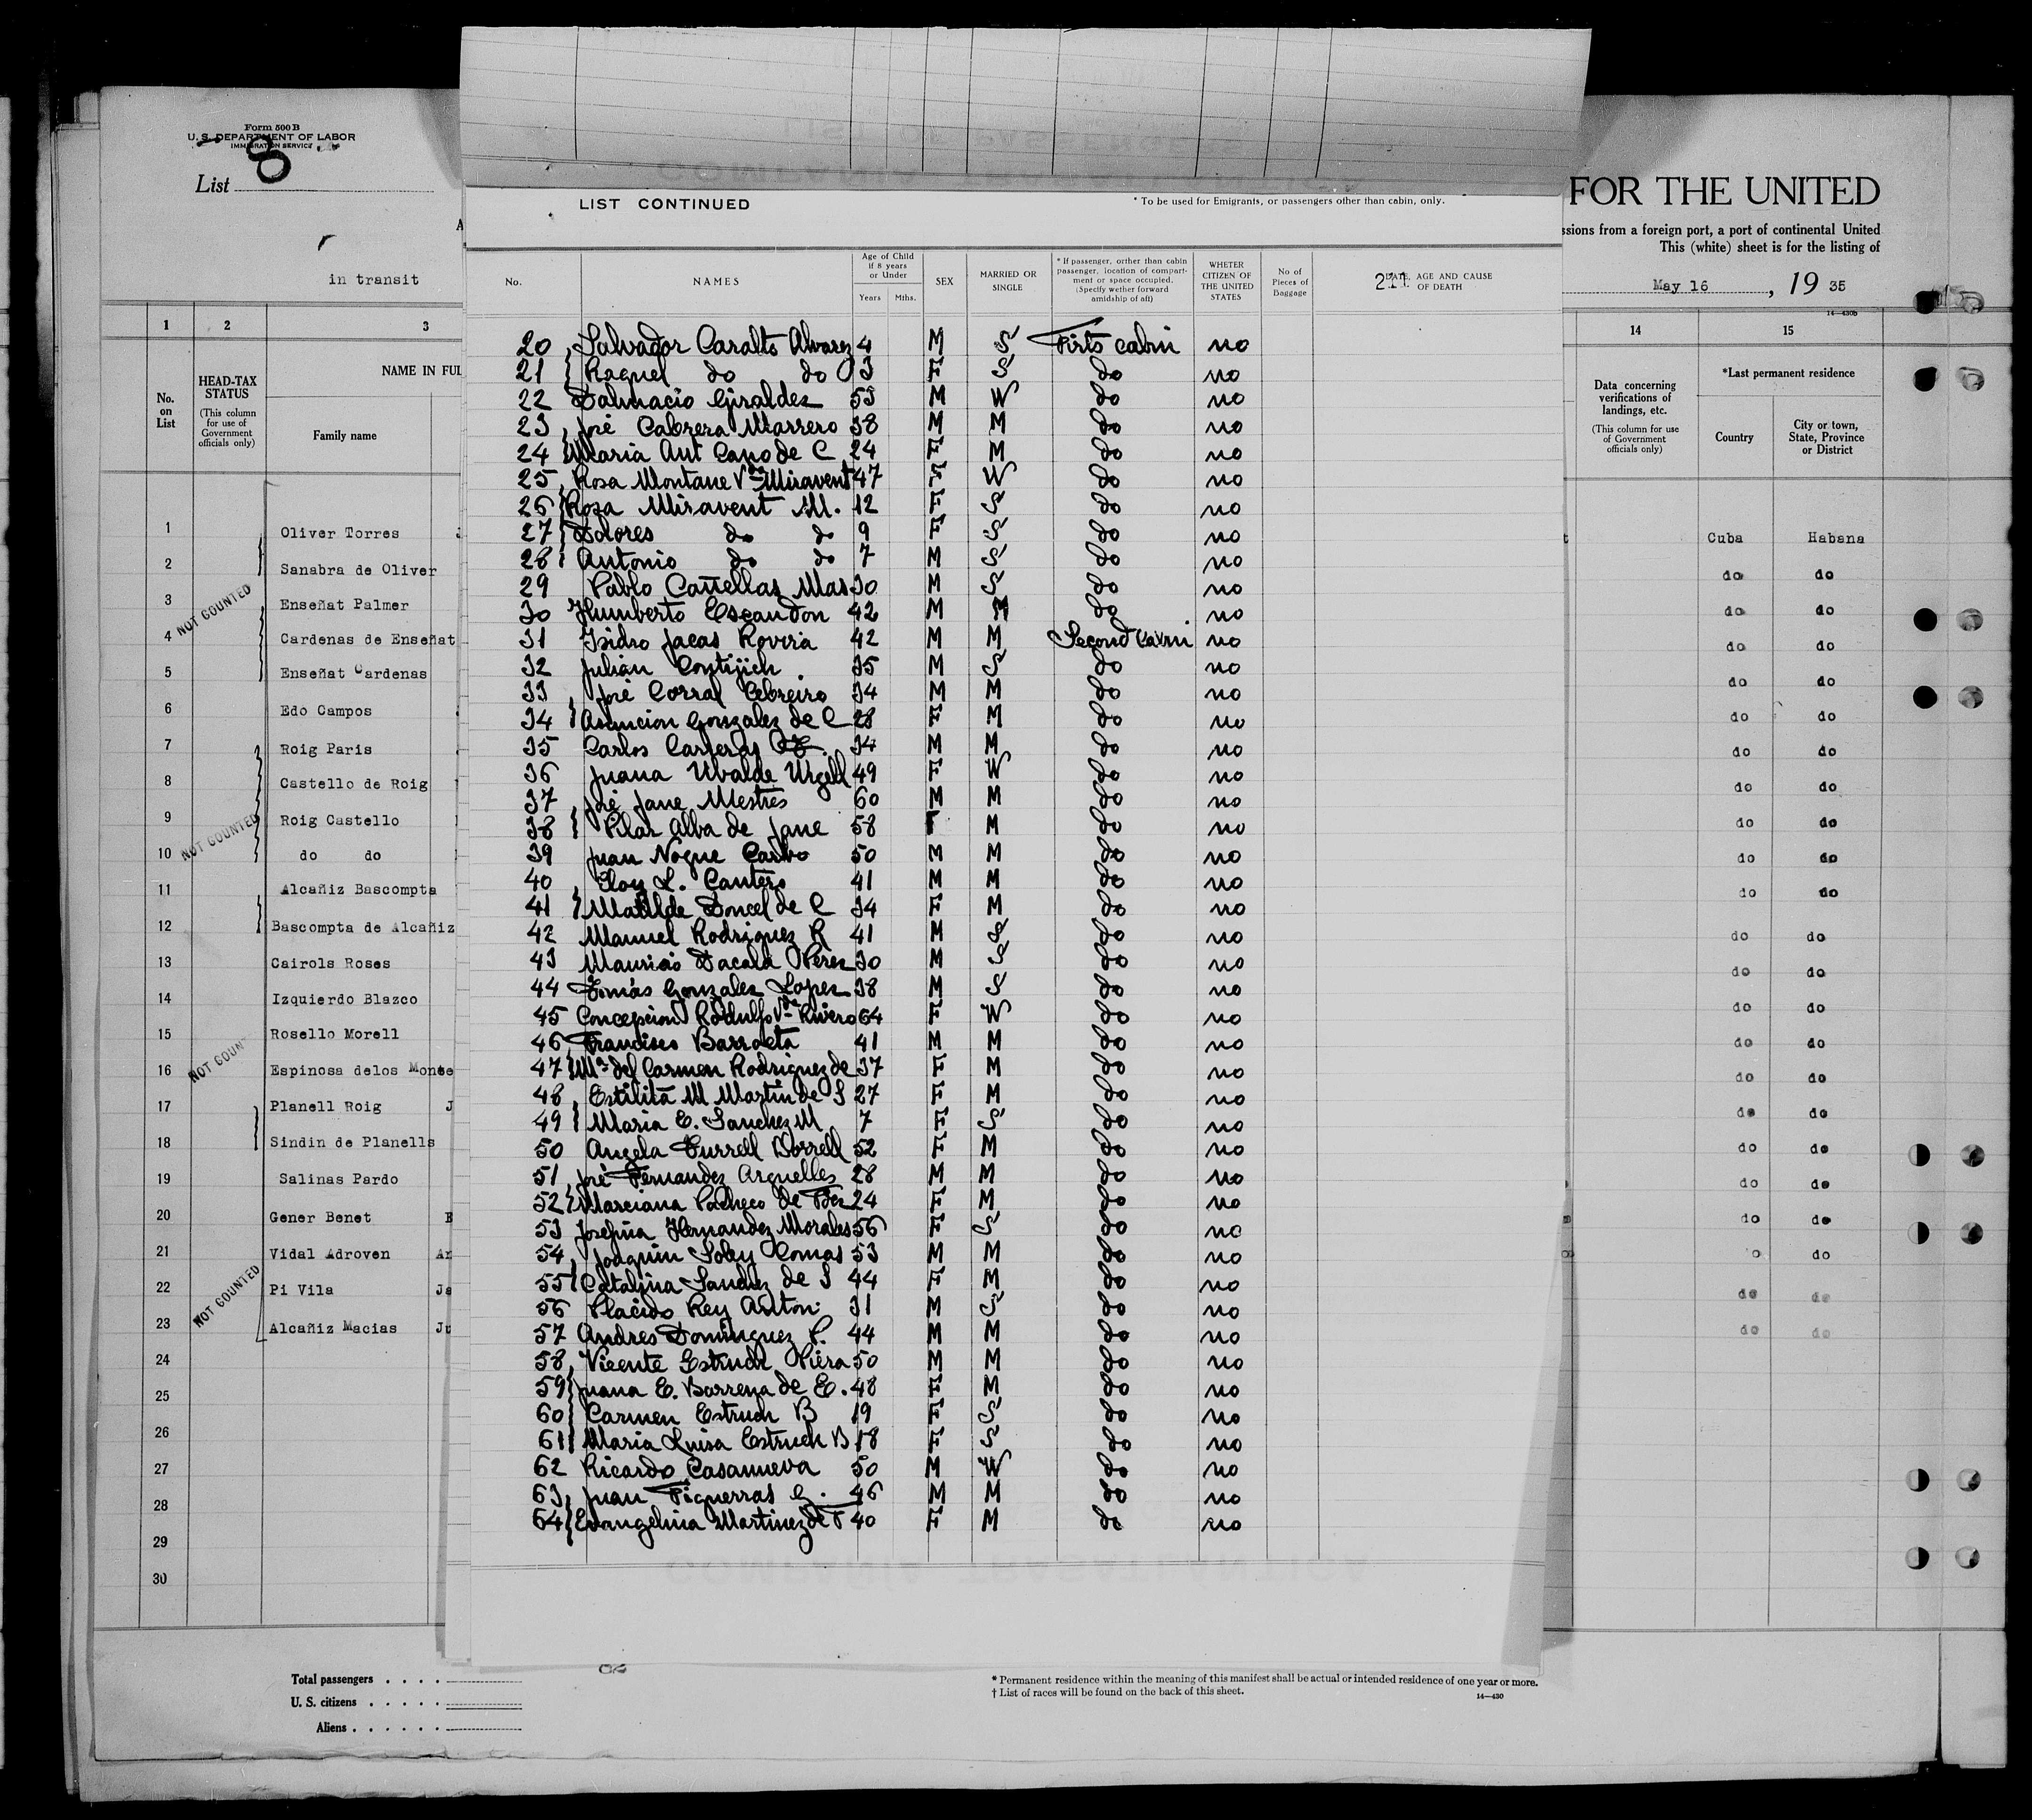 Form 500 B
U. S. DEPARTMENT OF LABOR
IMMIGRATION SERVICE
List 8
in transit
FOR THE UNITED
ssions from a foreign port, a port of continental United
This (white) sheet is for the listing of
May 16, 19 35
14—430b
1 2 3
No. on List
HEAD-TAX STATUS
(This column for use of Government officials only)
NAME IN FUL
Family name
1 Oliver Torres
2 Sanabra de Oliver
3 Enseñat Palmer
4 Cardenas de Enseñat
5 Enseñat Cardenas
6 Edo Campos
7 Roig Paris
8 Castello de Roig
9 Roig Castello
10 do do
11 Alcañiz Bascompta
12 Bascompta de Alcañiz
13 Cairols Roses
14 Izquierdo Blazco
15 Rosello Morell
16 Espinosa delos Monte
17 Planell Roig J
18 Sindin de Planells
19 Salinas Pardo
20 Gener Benet
21 Vidal Adroven
22 Pi Vila
23 Alcañiz Macias
24
25
26
27
28
29
30
NOT COUNTED
NOT COUNTED
NOT COUN
NOT COUNTED
Total passengers
U. S. citizens
Aliens
LIST CONTINUED
* To be used for Emigrants, or passengers other than cabin, only.
No.
NAMES
Age of Child if 8 years or Under
Years Mths.
SEX
MARRIED OR SINGLE
* If passenger, orther than cabin passenger, location of compartment or space occupied. (Specify wether forward amidship of aft)
WHETER CITIZEN OF THE UNITED STATES
No of Pieces of Baggage
211
DATE, AGE AND CAUSE OF DEATH
20 Salvador Caralts Alvarez 4 M S Firts cabin no
21 Raquel do do 3 F S do no
22 Dalmacio Giraldez 53 M W do no
23 José Cabrera Marrero 38 M M do no
24 Maria Ant Cano de C 24 F M do no
25 Rosa Montane Vda Miravent 47 F W do no
26 Rosa Miravent M. 12 F S do no
27 Dolores do do 9 F S do no
28 Antonio do do 7 M S do no
29 Pablo Cañellas Mas 30 M S do no
30 Humberto Escandon 42 M M do no
31 Isidro Jacas Rovira 42 M M Second Cabin no
32 Julian Contijich 35 M S do no
33 José Corral Cebreiro 34 M M do no
34 Asuncion Gonzalez de C 28 F M do no
35 Carlos Carreras 34 M M do no
36 Juana Ubalde Urgell 49 F W do no
37 José Jane Mestres 60 M M do no
38 Pilar Alba de Jane 58 F M do no
39 Juan Nogue Carbo 50 M M do no
40 Eloy L. Cantero 41 M M do no
41 Matilde Doncel de C 34 F M do no
42 Manuel Rodriguez R 41 M S do no
43 Mauricio Dacala Perez 30 M S do no
44 Tomás Gonzalez Lopez 38 M S do no
45 Concepcion Rodulfo Vda Rivero 64 F W do no
46 Francisco Barroeta 41 M M do no
47 Ma del Carmen Rodriguez de 37 F M do no
48 Estilita M Martin de S 27 F M do no
49 Maria E. Sanchez M 7 F S do no
50 Angela Turrell Borrell 52 F M do no
51 José Fernandez Arguelles 28 M M do no
52 Marciana Pacheco de Fer 24 F M do no
53 Josefina Hernandez Morales 56 F S do no
54 Joaquin Soley Comas 53 M M do no
55 Catalina Sanchez de S 44 F M do no
56 Placido Rey Anton 31 M S do no
57 Andres Dominguez P. 44 M M do no
58 Vicente Estruch Piera 50 M M do no
59 Juana E. Barrena de E. 48 F M do no
60 Carmen Estruch B 19 F S do no
61 Maria Luisa Estruch B 18 F S do no
62 Ricardo Casanueva 50 M W do no
63 Juan Figuerras G. 46 M M do no
64 Evangelina Martinez de F 40 F M do no
14 15
Data concerning verifications of landings, etc.
(This column for use of Government officials only)
*Last permanent residence
Country
City or town, State, Province or District
Cuba Habana
do do
do do
do do
do do
do do
do do
do do
do do
do do
do do
do do
do do
do do
do do
do do
do do
do do
do do
do do
do do
do do
do do
* Permanent residence within the meaning of this manifest shall be actual or intended residence of one year or more.
† List of races will be found on the back of this sheet.
14—430